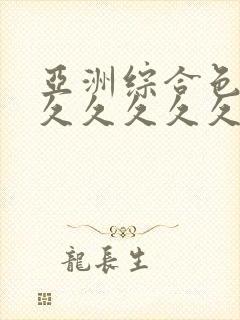 亞洲綜合色
久久久久久
龍長生